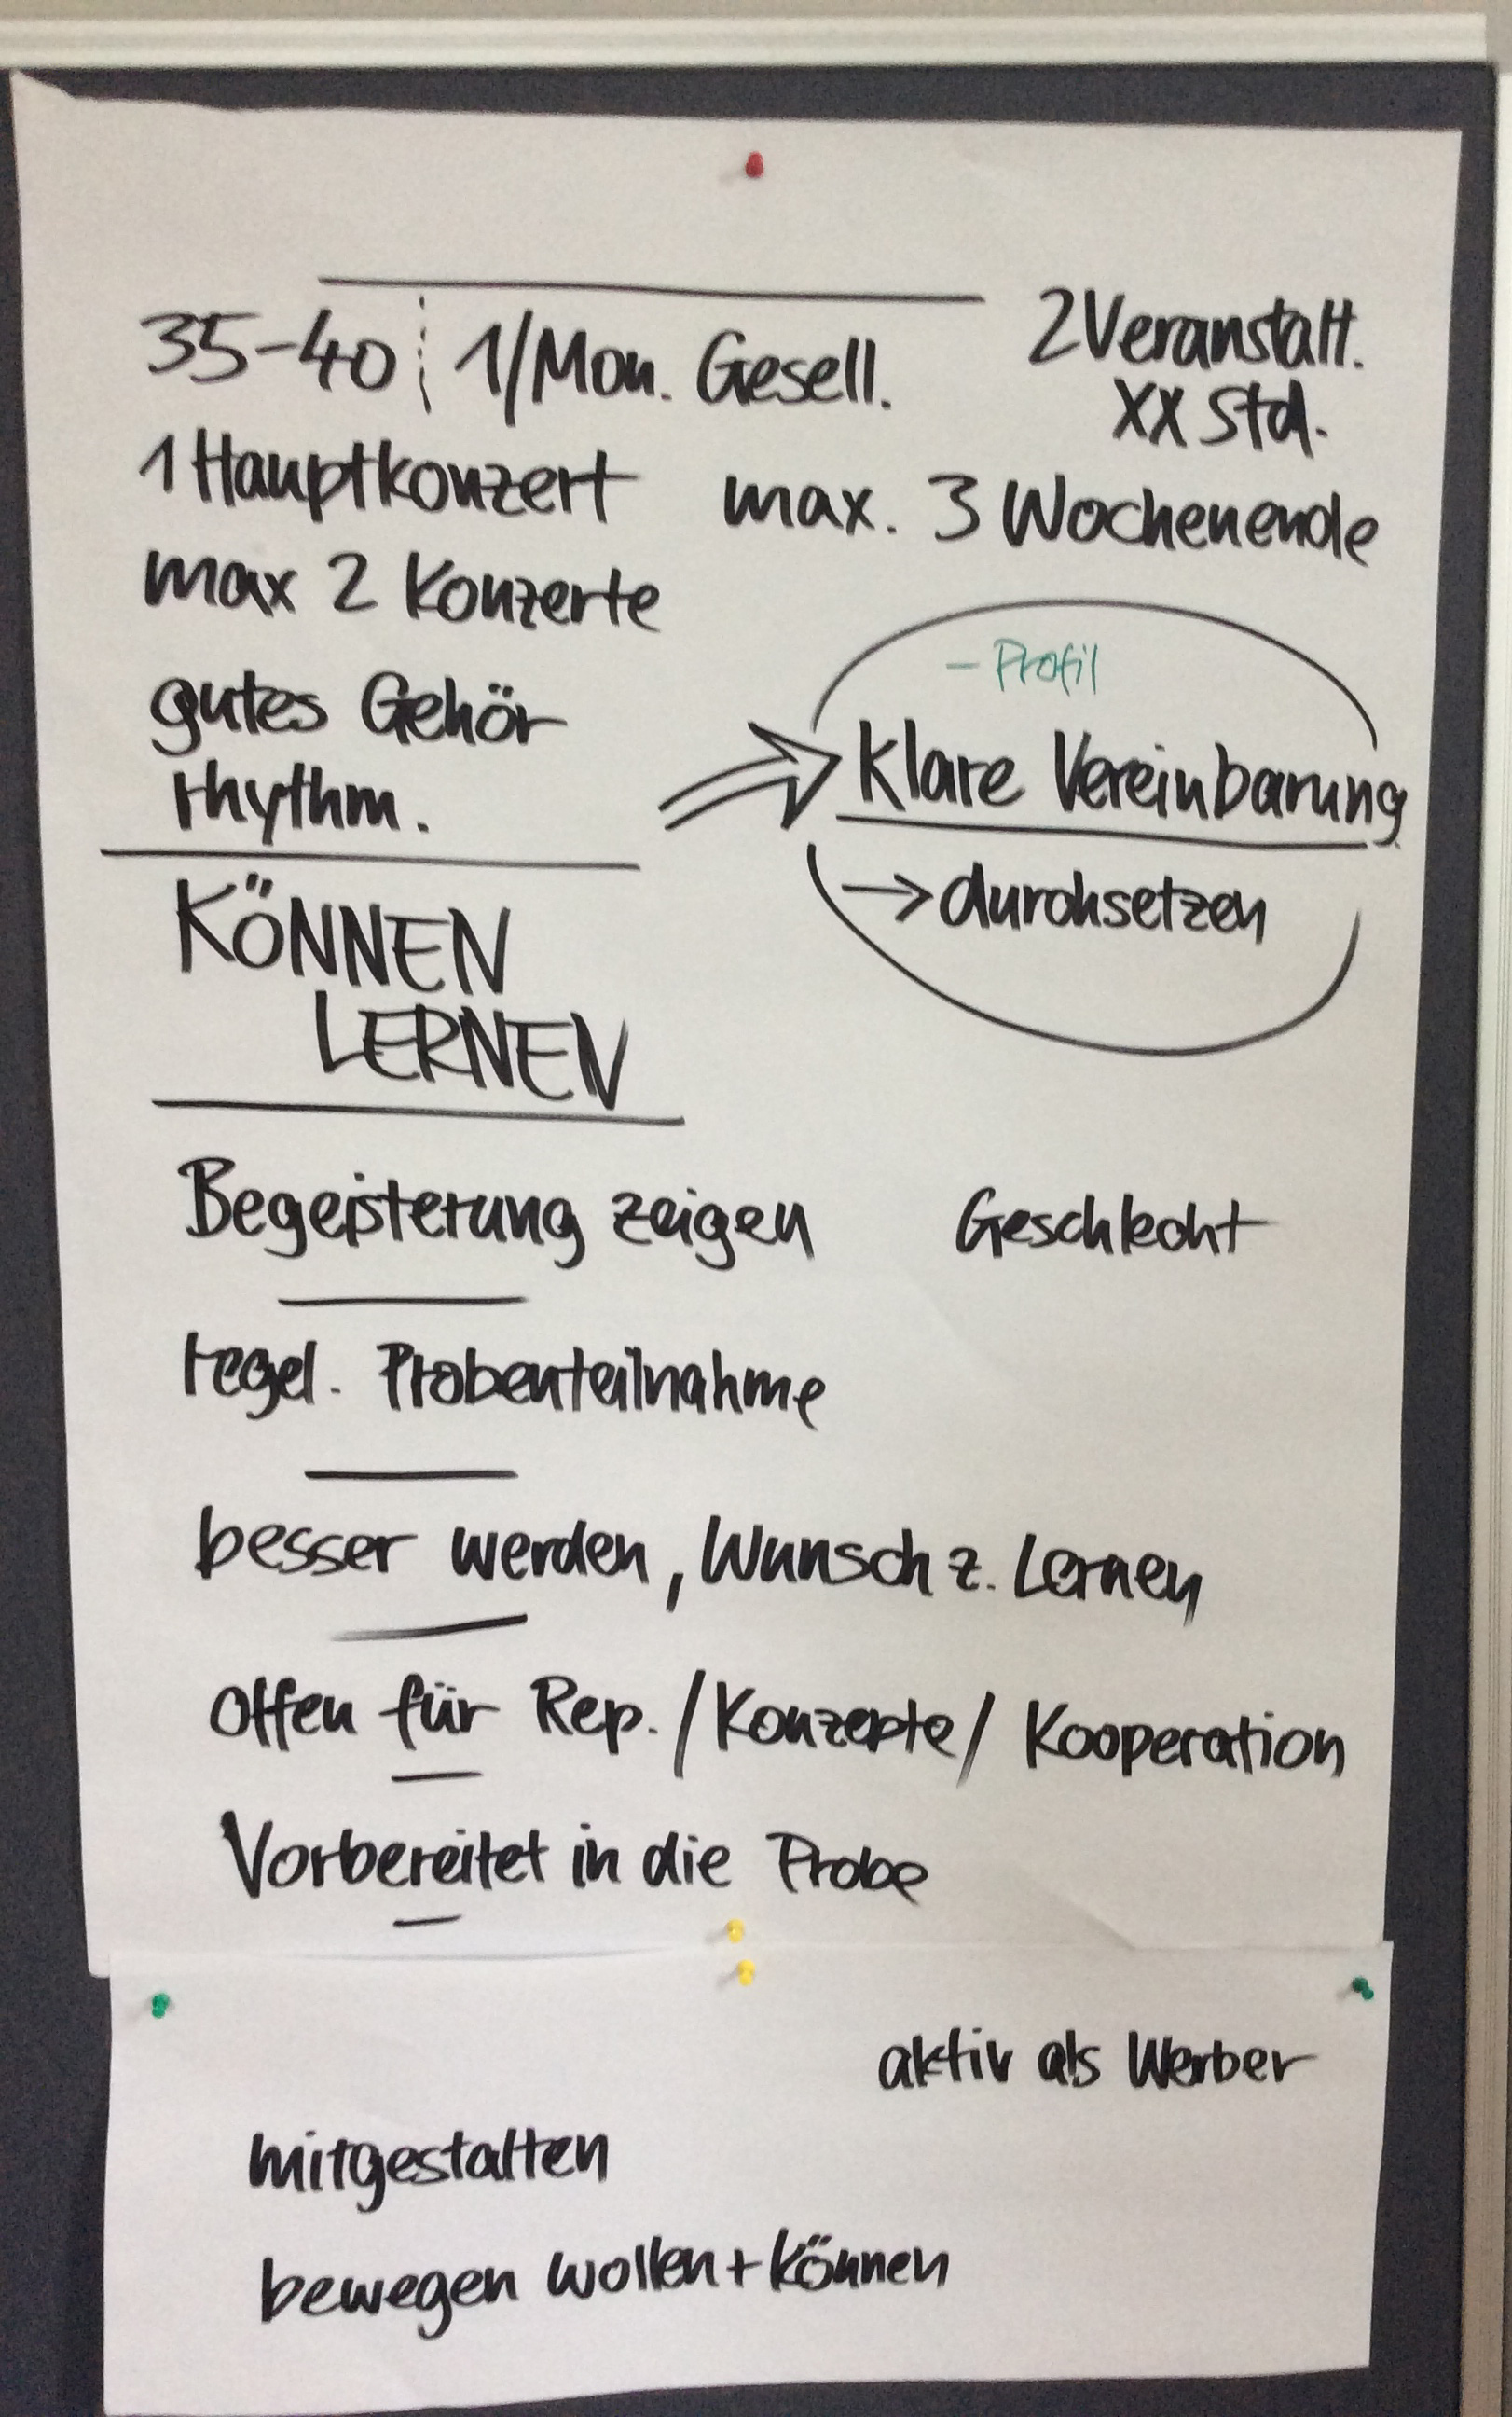 35-40 1/Mon. Gesell.
2 Veranstalt.
XX Std.
1 Hauptkonzert
max. 3 Wochenende
max 2 Konzerte
gutes Gehör
rhythm.
- Profil
Klare Vereinbarung
→ durchsetzen
KÖNNEN
LERNEN
Begeisterung zeigen
Geschlecht
regel. Probenteilnahme
besser werden, Wunsch z. Lernen
Offen für Rep. / Konzepte / Kooperation
Vorbereitet in die Probe
aktiv als Werber
mitgestalten
bewegen wollen + können